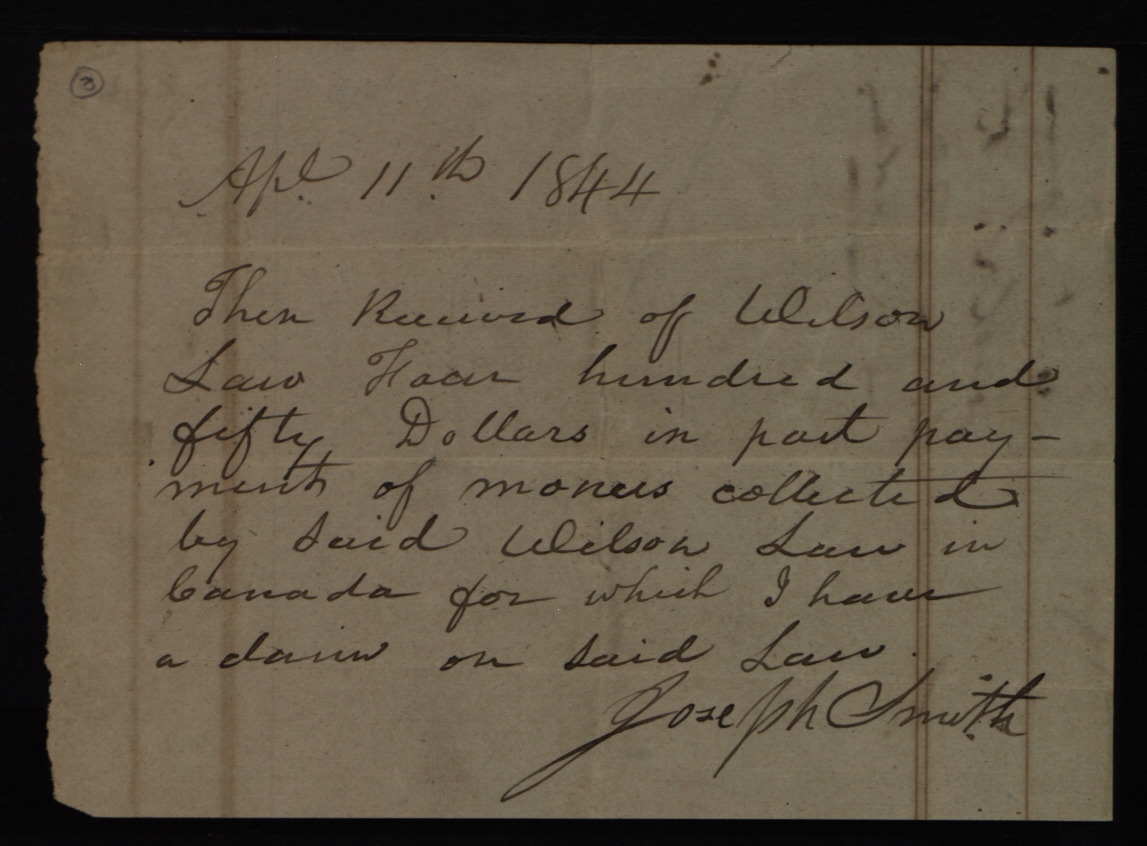 3
Apl. 11th 1844
Then Received of Wilson
Law Four hundred and
fifty Dollars in part pay-
ment of monies collected
by Said Wilson Law in
Canada for which I have
a claim on Said Law.
Joseph Smith